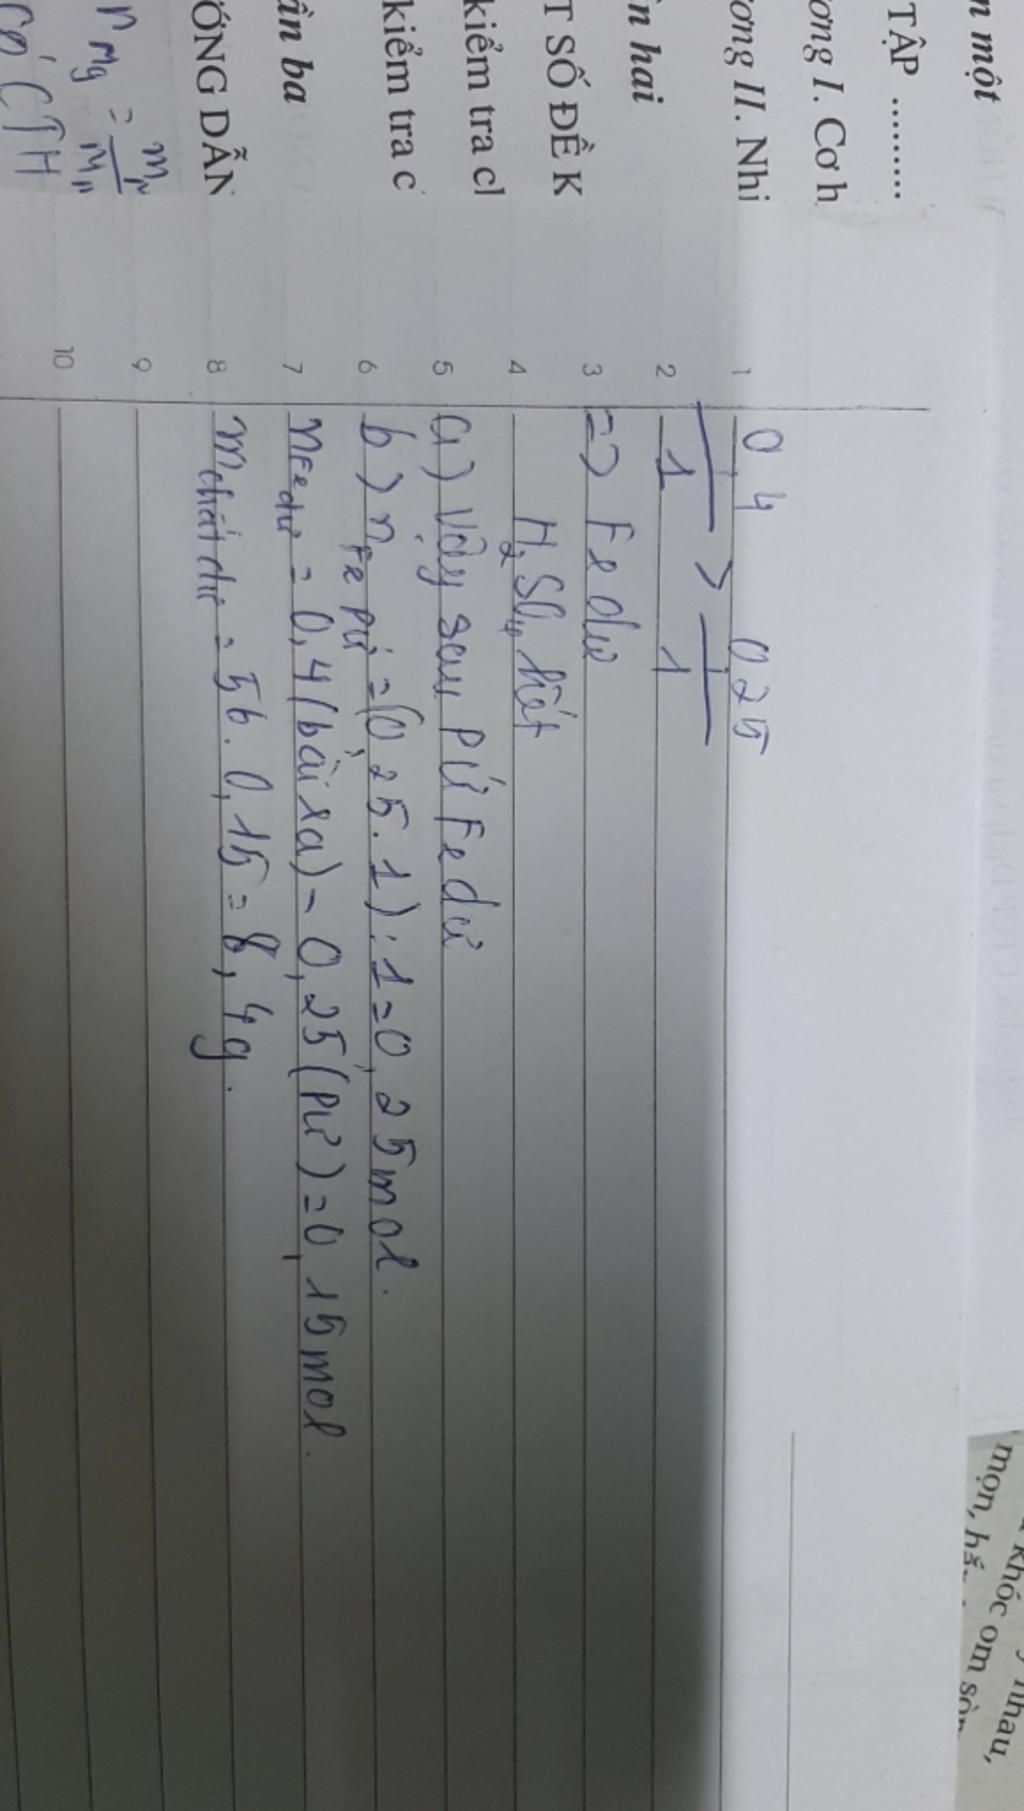 n một
TẬP .........
ơng I. Cơ h
ơng II. Nhi
n hai
T SỐ ĐỀ K
kiểm tra cl
kiểm tra c
ần ba
ỚNG DẪN
n Mg = m / M
CTH
1
2
3
4
5
6
7
8
9
10
0 4 / 1 > 0 25 / 1
=> Fe dư
H₂SO₄ hết
a) Vậy sau pứ Fe dư
b) n Fe pứ = (0,25.1):1=0,25 mol.
n Fe dư = 0,4 (bài ra) - 0,25 (pứ) = 0,15 mol.
m chất dư = 56.0,15 = 8,4g.
khóc om sòm
nhau,
mọn,